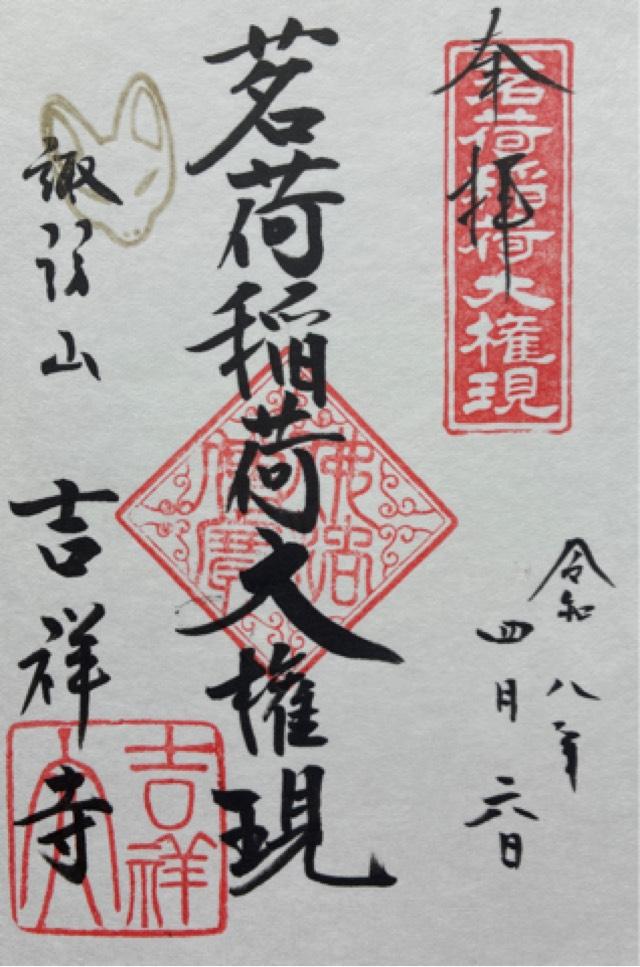 奉拝
茗荷稲荷大権現
令和八年
四月六日
茗荷稲荷大権現
諏訪山 吉祥寺
吉祥